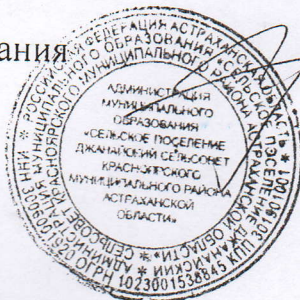 ания
* РОССИЙСКАЯ ФЕДЕРАЦИЯ АСТРАХАНСКАЯ ОБЛАСТЬ *
МУНИЦИПАЛЬНОГО ОБРАЗОВАНИЯ «СЕЛЬСКОЕ ПОСЕЛЕНИЕ
ДЖАНАЙСКИЙ СЕЛЬСОВЕТ КРАСНОЯРСКОГО МУНИЦИПАЛЬНОГО РАЙОНА АСТРАХАНСКОЙ ОБЛАСТИ» * АДМИНИСТРАЦИЯ
ОГРН 1023001538845 КПП 301901001
ИНН
АДМИНИСТРАЦИЯ
МУНИЦИПАЛЬНОГО
ОБРАЗОВАНИЯ
«СЕЛЬСКОЕ ПОСЕЛЕНИЕ
ДЖАНАЙСКИЙ СЕЛЬСОВЕТ
КРАСНОЯРСКОГО
МУНИЦИПАЛЬНОГО РАЙОНА
АСТРАХАНСКОЙ
ОБЛАСТИ»